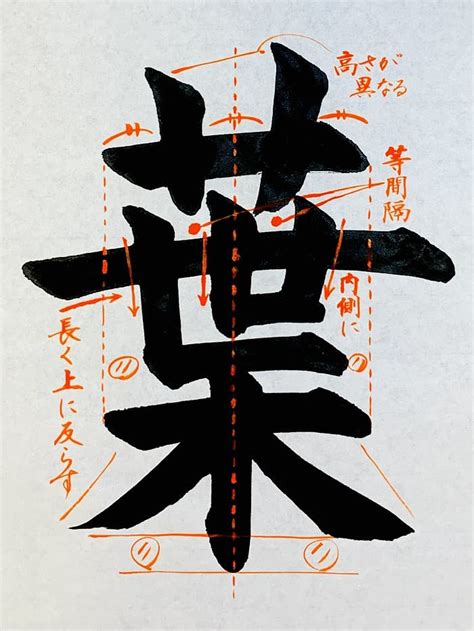 葉
高さが
異なる
等間隔
内側に
長く上に反らす